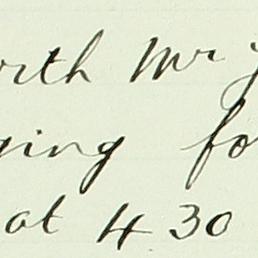 rth Mr
ging fo
at 4.30